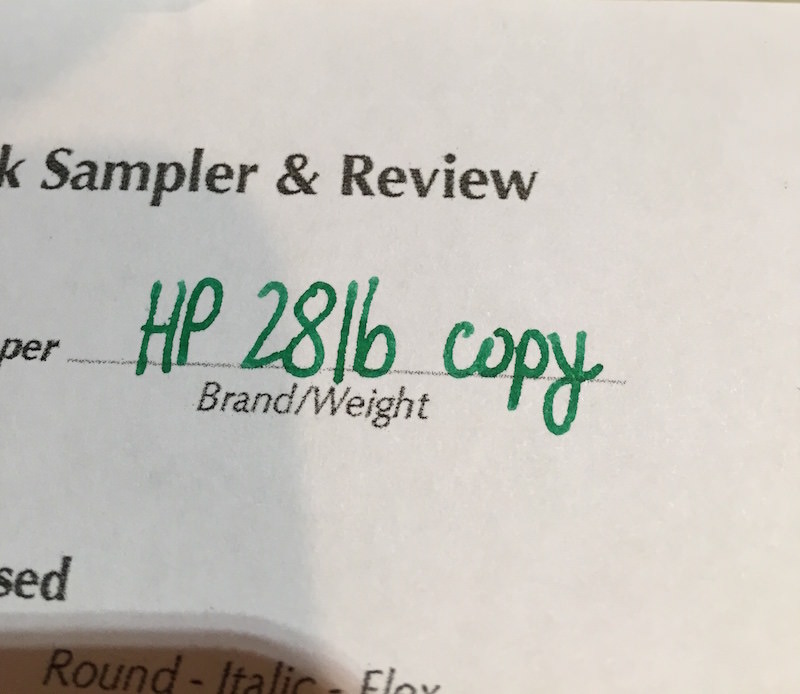 k Sampler & Review
per HP 28lb copy
Brand/Weight
sed
Round - Italic - Flex